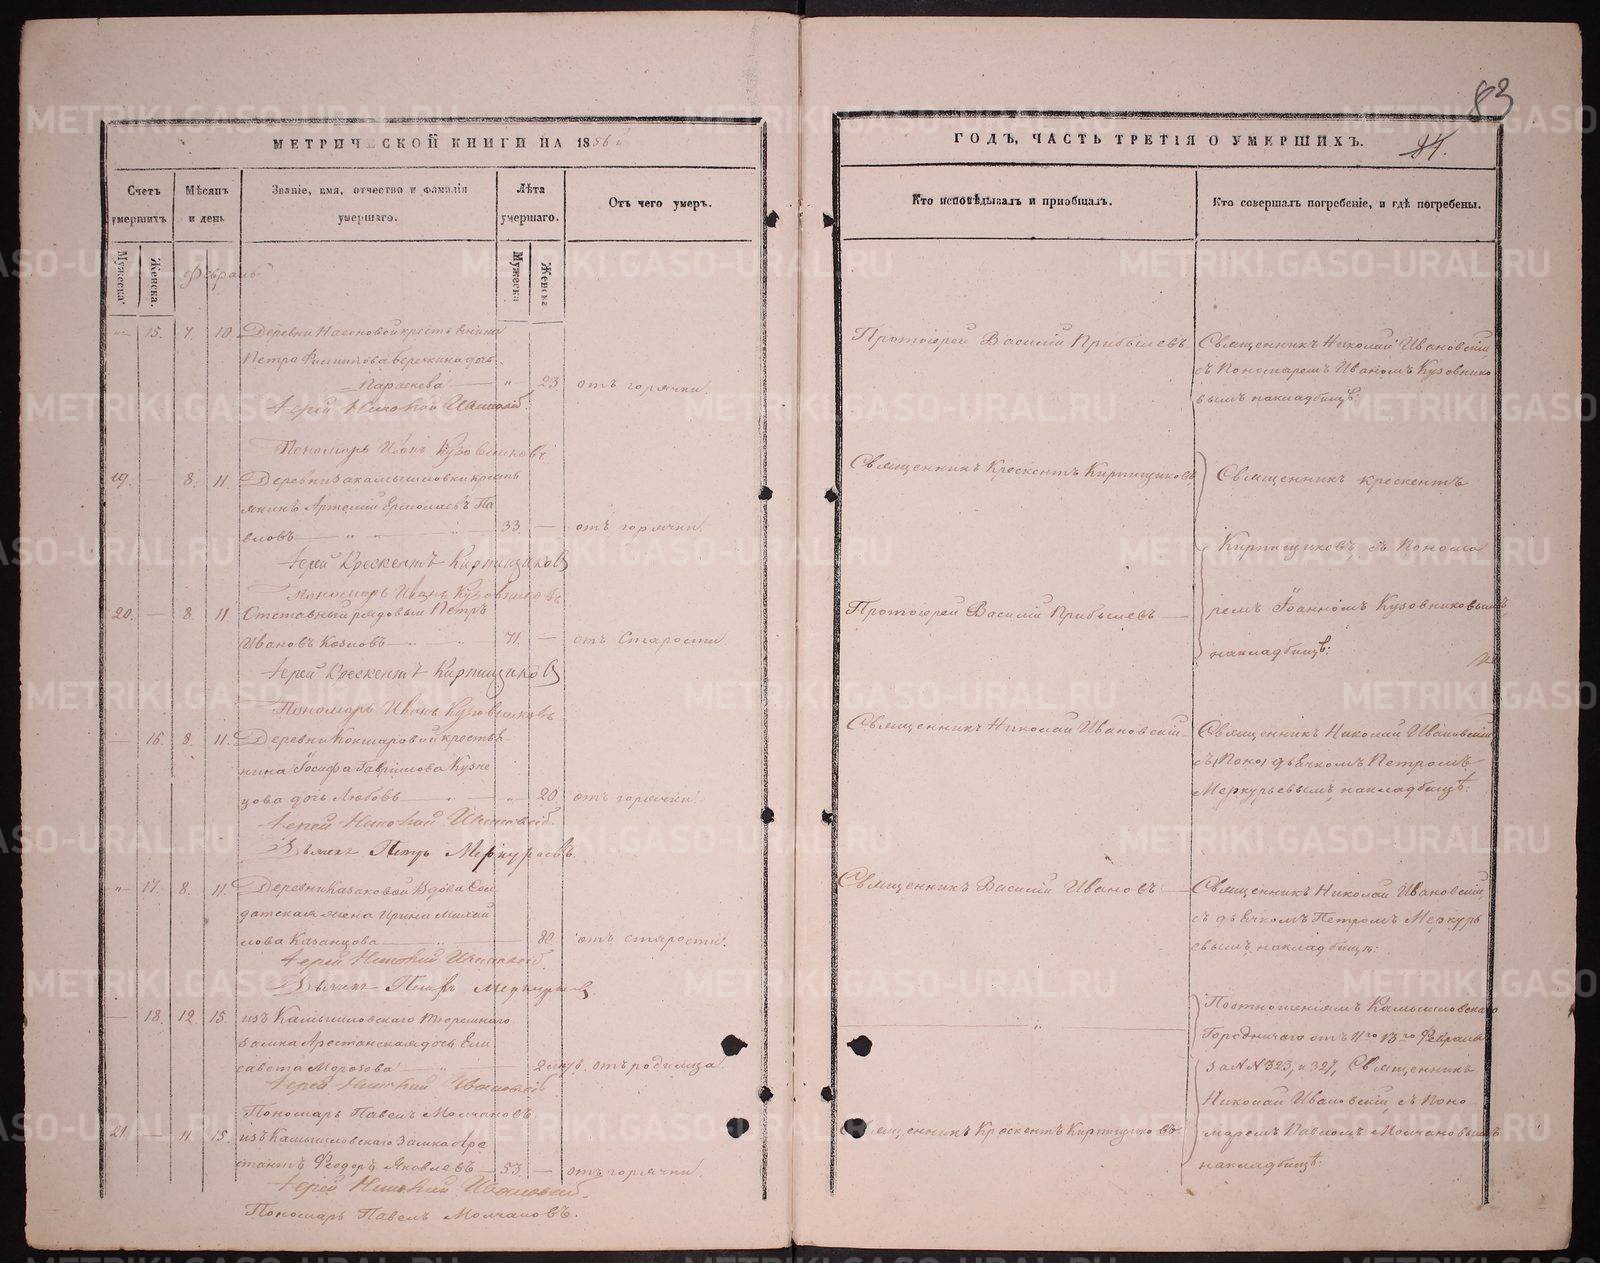 83
МЕТРИЧЕСКОЙ КНИГИ НА 1856 й
ГОДЪ, ЧАСТЬ ТРЕТІЯ О УМЕРШИХЪ.
84.
Счетъ умершихъ
Мѣсяцъ и день
Званіе, имя, отчество и фамилія умершаго.
Лѣта умершаго.
Отъ чего умеръ.
Кто исповѣдывалъ и пріобщалъ.
Кто совершалъ погребеніе, и гдѣ погребены.
Мужеска
Женска.
Февраль
Мужеска
Женска
15. 7. 10. Деревни Насоновой крестьянина
Петра Филиппова дочь
Параскева 23 отъ горячки.
Іерей Николай Ивановскій
Пономарь Иванъ Кузовниковъ
Протоіерей Василій Прибылевъ
Священникъ Николай Ивановскій
съ Пономаремъ Иваномъ Кузовнико
вымъ на кладбищѣ.
19. 8. 11. Деревни Закамышловки кресть
янинъ Артемій Ермолаевъ Па
вловъ 33 отъ горячки.
Іерей Крескентъ Кирпищиковъ
Пономарь Иванъ Кузовниковъ
Священникъ Крескентъ Кирпищиковъ
Священникъ Крескентъ
Кирпищиковъ съ Понома
ремъ Іоанномъ Кузовниковымъ
на кладбищѣ:
20. 8. 11. Отставный рядовый Петръ
Ивановъ Козловъ 71. отъ Старости.
Іерей Крескентъ Кирпищиковъ
Пономарь Иванъ Кузовниковъ
Протоіерей Василій Прибылевъ
16. 8. 11. Деревни Кокшаровой крестья
нина Іосифа Гаврилова Кузне
цова дочь Любовь 20. отъ горячки.
Іерей Николай Ивановскій
Дьячекъ Петръ Меркурьевъ
Священникъ Николай Ивановскій
Священникъ Николай Ивановскій
съ (Поно) дьячкомъ Петромъ
Меркурьевымъ, на кладбищѣ:
17. 8. 11. Деревни Казаковой Вдова Сол
датская жена Ирина Михай
лова Казанцова 80. отъ старости.
Іерей Николай Ивановскій
Дьячекъ Петръ Меркурьевъ
Священникъ Василій Ивановъ
Священникъ Николай Ивановскій,
съ дьячкомъ Петромъ Меркурь
евымъ, на кладбищѣ:
18. 12. 15. изъ Камышловскаго Тюремнаго
замка Арестанская дочь Ели
савета Морозова 2 отъ родимца
Іерей Николай Ивановскій
Пономарь Павелъ Молчановъ
По отношеніямъ Камышловскаго
Городничаго отъ 11го и 13го Февраля
за №№ 323, и 327, Священникъ
Николай Ивановскій, съ Поно
маремъ Павломъ Молчановымъ
на кладбищѣ:
21. 11. 15. изъ Камышловскаго замка Аре
стантъ Феодоръ Яковлевъ 53. отъ горячки.
Іерей Николай Ивановскій.
Пономарь Павелъ Молчановъ.
Священникъ Крескентъ Кирпищиковъ
METRIKI.GASO-URAL.RU